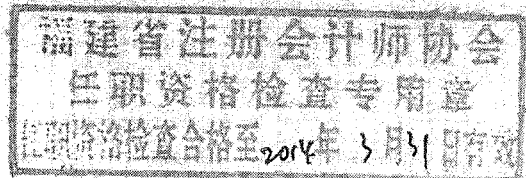 福建省注册会计师协会
任职资格检查专用章
任职资格检查合格至2014年3月31日有效